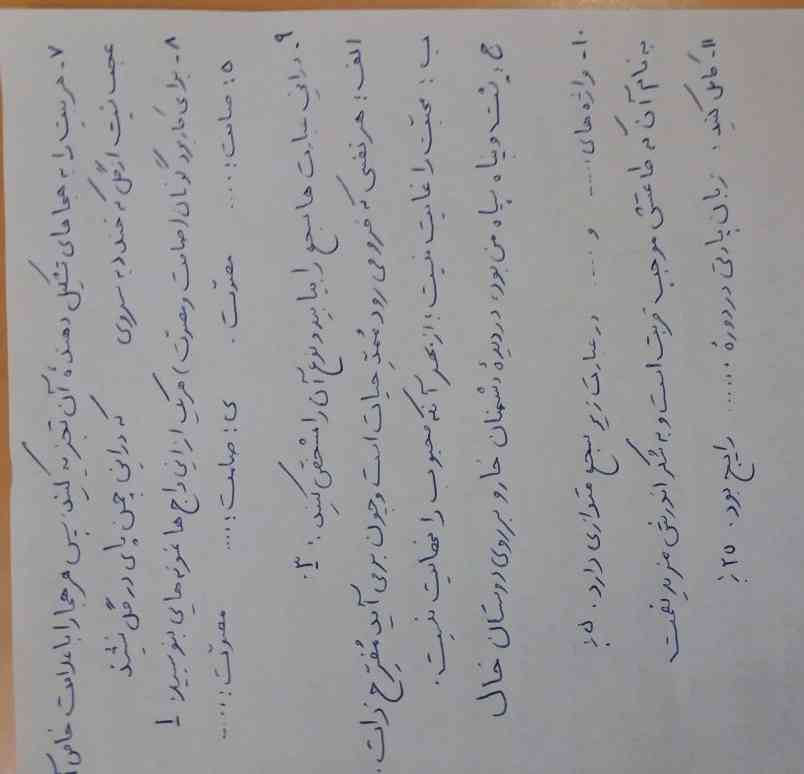 ۷- هر بیت را به هجاهای تشکیل دهندهٔ آن تجزیه کنید، سپس هر هجا را با علامت خاص
عجب نیست از گل که خندد به سروی که در این چمن پای در گل نشیند
۸- برای کاربرد گونان (صامت و مصوت) هریک از این واج ها نمونه هایی بنویسید: ۱
و: صامت: ..... مصوت: ی: صامت: ..... مصوت: .....
۹- در این عبارت ها سجع را بیابید و نوع آن را مشخص کنید: ۳
الف: هر نفسی که فرو می رود مُمدِّ حیات است و چون برمی آید مُفرِّح ذات.
ب: محبّت را غایت نیست؛ از بهر آنکه محبوب را نهایت نیست.
ج: پشت و پناه سپاه من بود، در دیدهٔ دشمنان خار و بر روی دوستان خال
۱۰- واژه های ..... و ..... در عبارت زیر سجع متوازی دارد. ۰/۵
به نام آن که طاعتش موجب قربت است و به شکر اندرش مزید نعمت
۱۱- کامل کنید: زبان پارتی در دورهٔ ..... رایج بود. ۰/۲۵